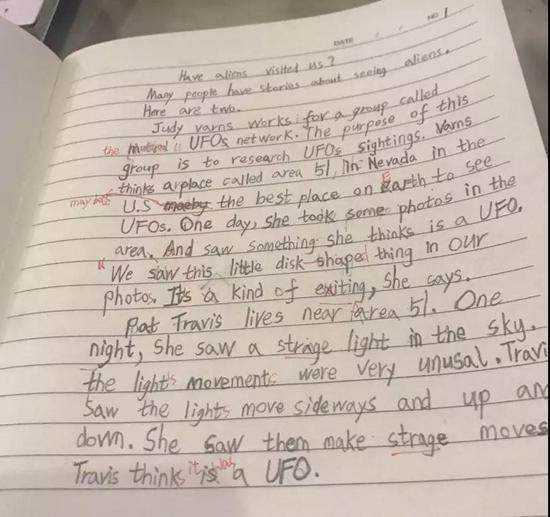 DATE
NO 1
Have aliens visited us?
Many people have stories about seeing aliens.
Here are two.
Judy varns works for a group called
the UFOs network. The purpose of this
group is to research UFOs sightings. Varns
thinks a place called area 51, in Nevada in the
may be U.S maeby the best place on Earth to see
UFOs. One day, she took some photos in the
area. And saw something she thinks is a UFO.
"We saw this little disk-shaped thing in our
photos. It's a kind of exiting, she says.
Pat Travis lives near Area 51. One
night, she saw a strage light in the sky.
the light's movements were very unusal. Travi
saw the lights move sideways and up an
down. She saw them make strage moves
Travis thinks it is was a UFO.